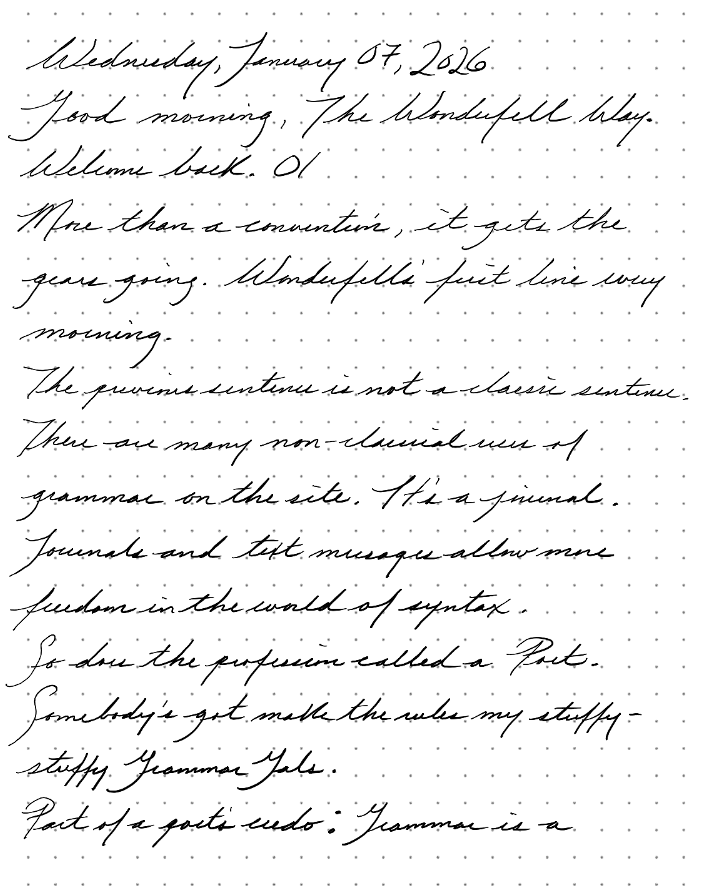 Wednesday, January 07, 2026
Good morning, The Wonderfell Way.
Welcome back. 01
More than a convention, it gets the
gears going. Wonderfell's first line every
morning.
The previous sentence is not a classic sentence.
There are many non-classical uses of
grammar on the site. It's a journal.
Journals and text messages allow more
freedom in the world of syntax.
So does the profession called a Poet.
Somebody's got make the rules my stuffy-
stuffy Grammar Gals.
Part of a poet's credo: Grammar is a